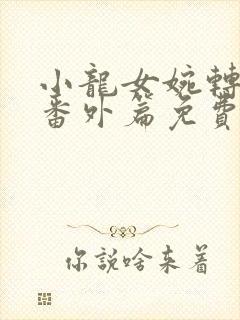 小龍女婉轉
番外篇免費
你說啥来着